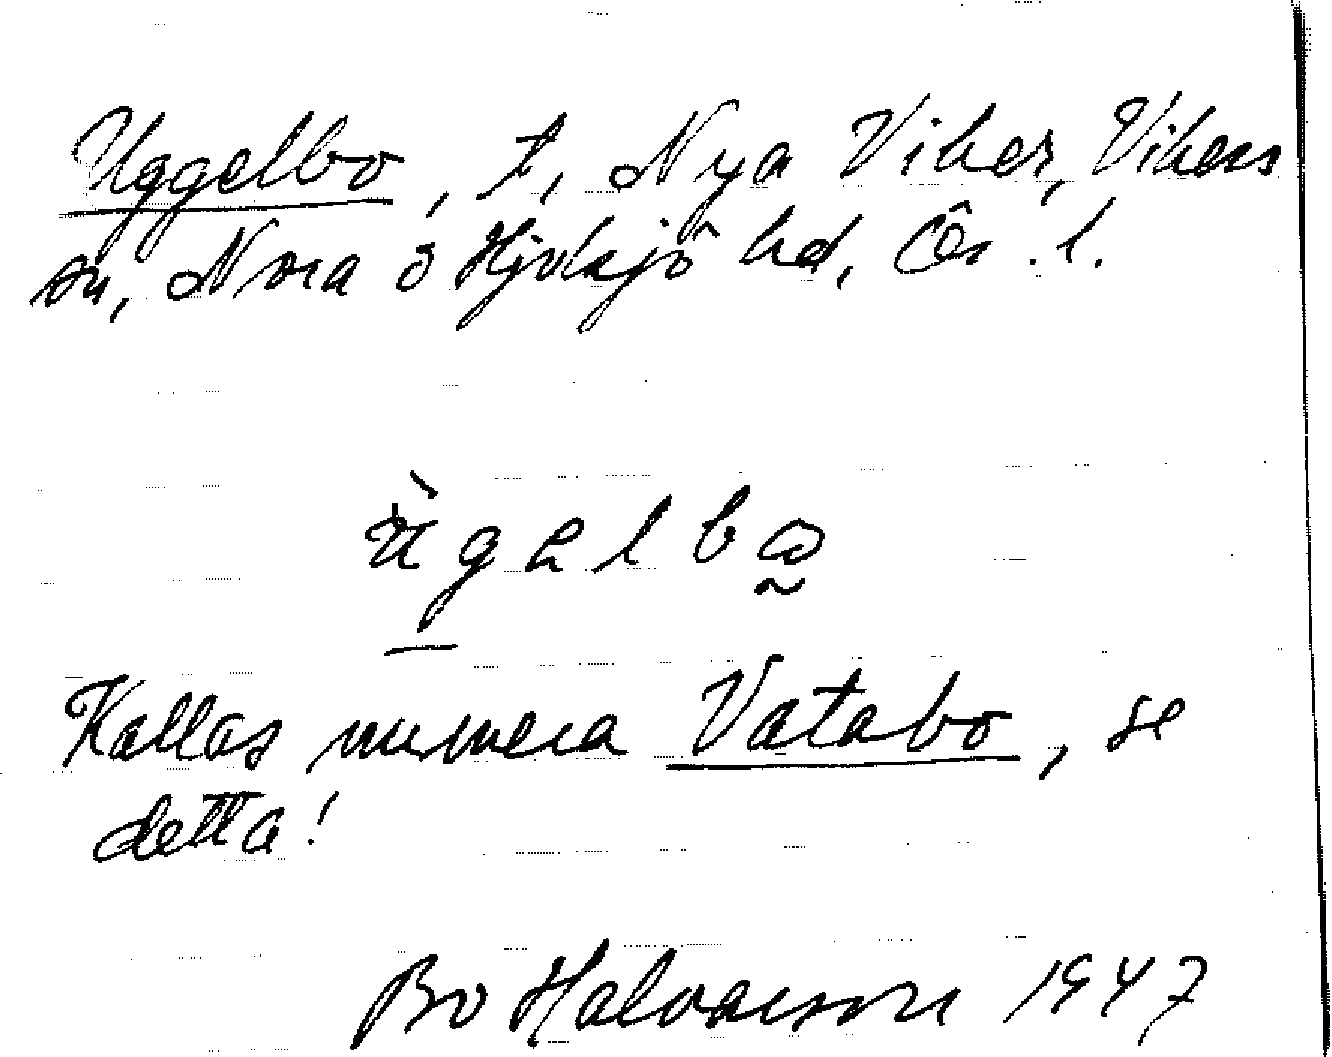 Uggelbo, t, Nya Viker, Vikers
sn, Nora o Hjulsjö hd, Ör. l.
ùgəlbω
Kallas numera Vatabo, se
detta!
Bo Halvarson 1947